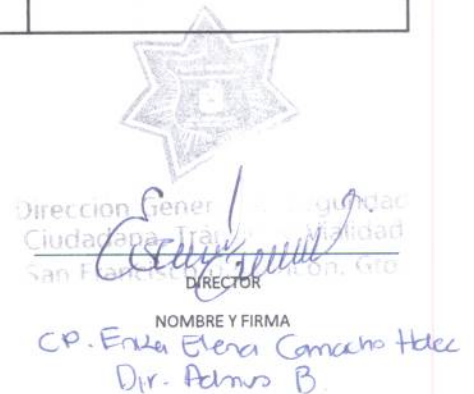 Direccion Gener Seguridad
Ciudadana, Tránsito Vialidad
San Francisco Rincón, Gto
DIRECTOR
NOMBRE Y FIRMA
CP. Erika Elena Camacho Hdec
Dir. Admvo B.